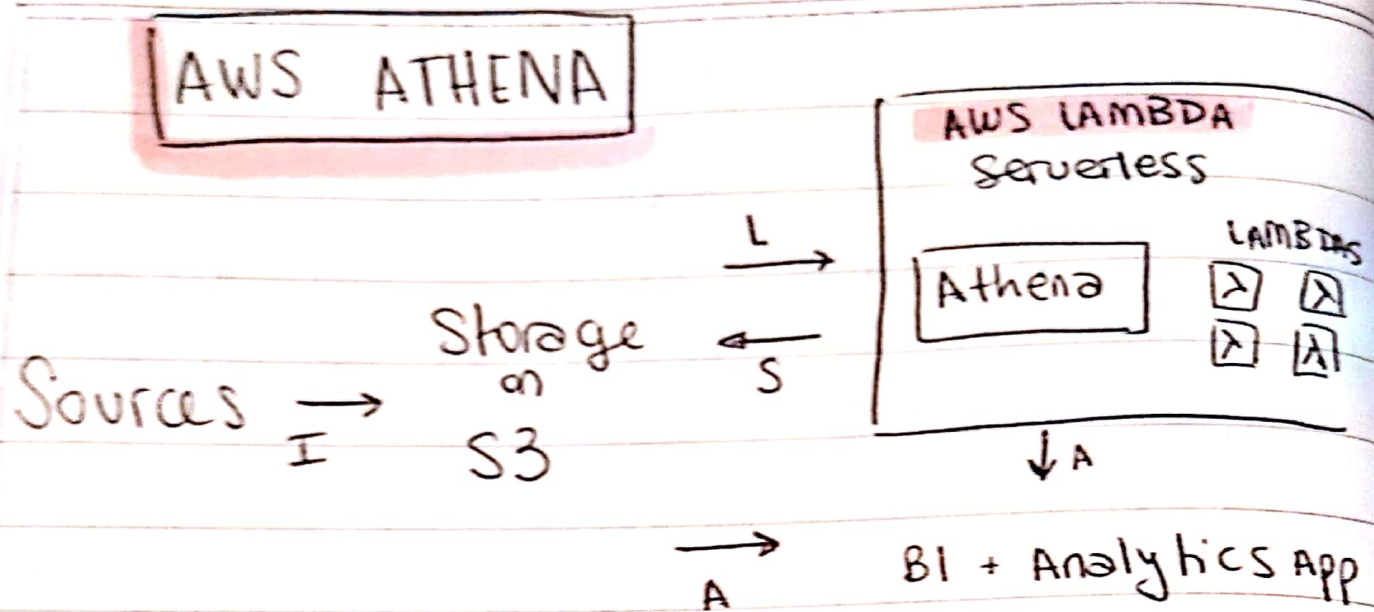 AWS ATHENA
AWS LAMBDA
Serverless
L
LAMBDAS
Athena
λ λ
λ λ
Storage
on
S3
S
Sources
I
A
A
BI + Analytics App